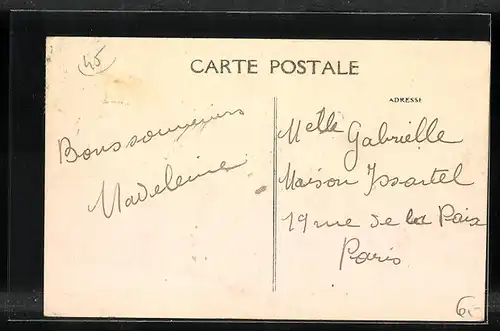 45
CARTE POSTALE
ADRESSE
Bons souvenirs
Madeleine
Melle Gabrielle
Maison Issartel
19 rue de la Paix
Paris
6,-